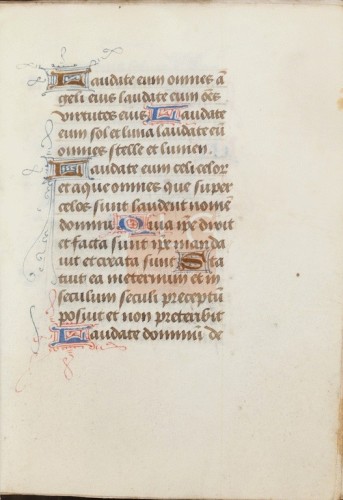 Laudate eum omnes ā
geli eius laudate eum om̄s
virtutes eius Laudate
eum sol et luna laudate eū
omnes stelle et lumen.
Laudate eum celi celor
et aque omnes que super
celos sunt laudent nomē
domini Quia ipe dixit
et facta sunt ipe man da
uit et creata sunt Sta
tuit ea in eternum et in
seculum seculi preceptū
posuit et non preteribit
Laudate dominū de